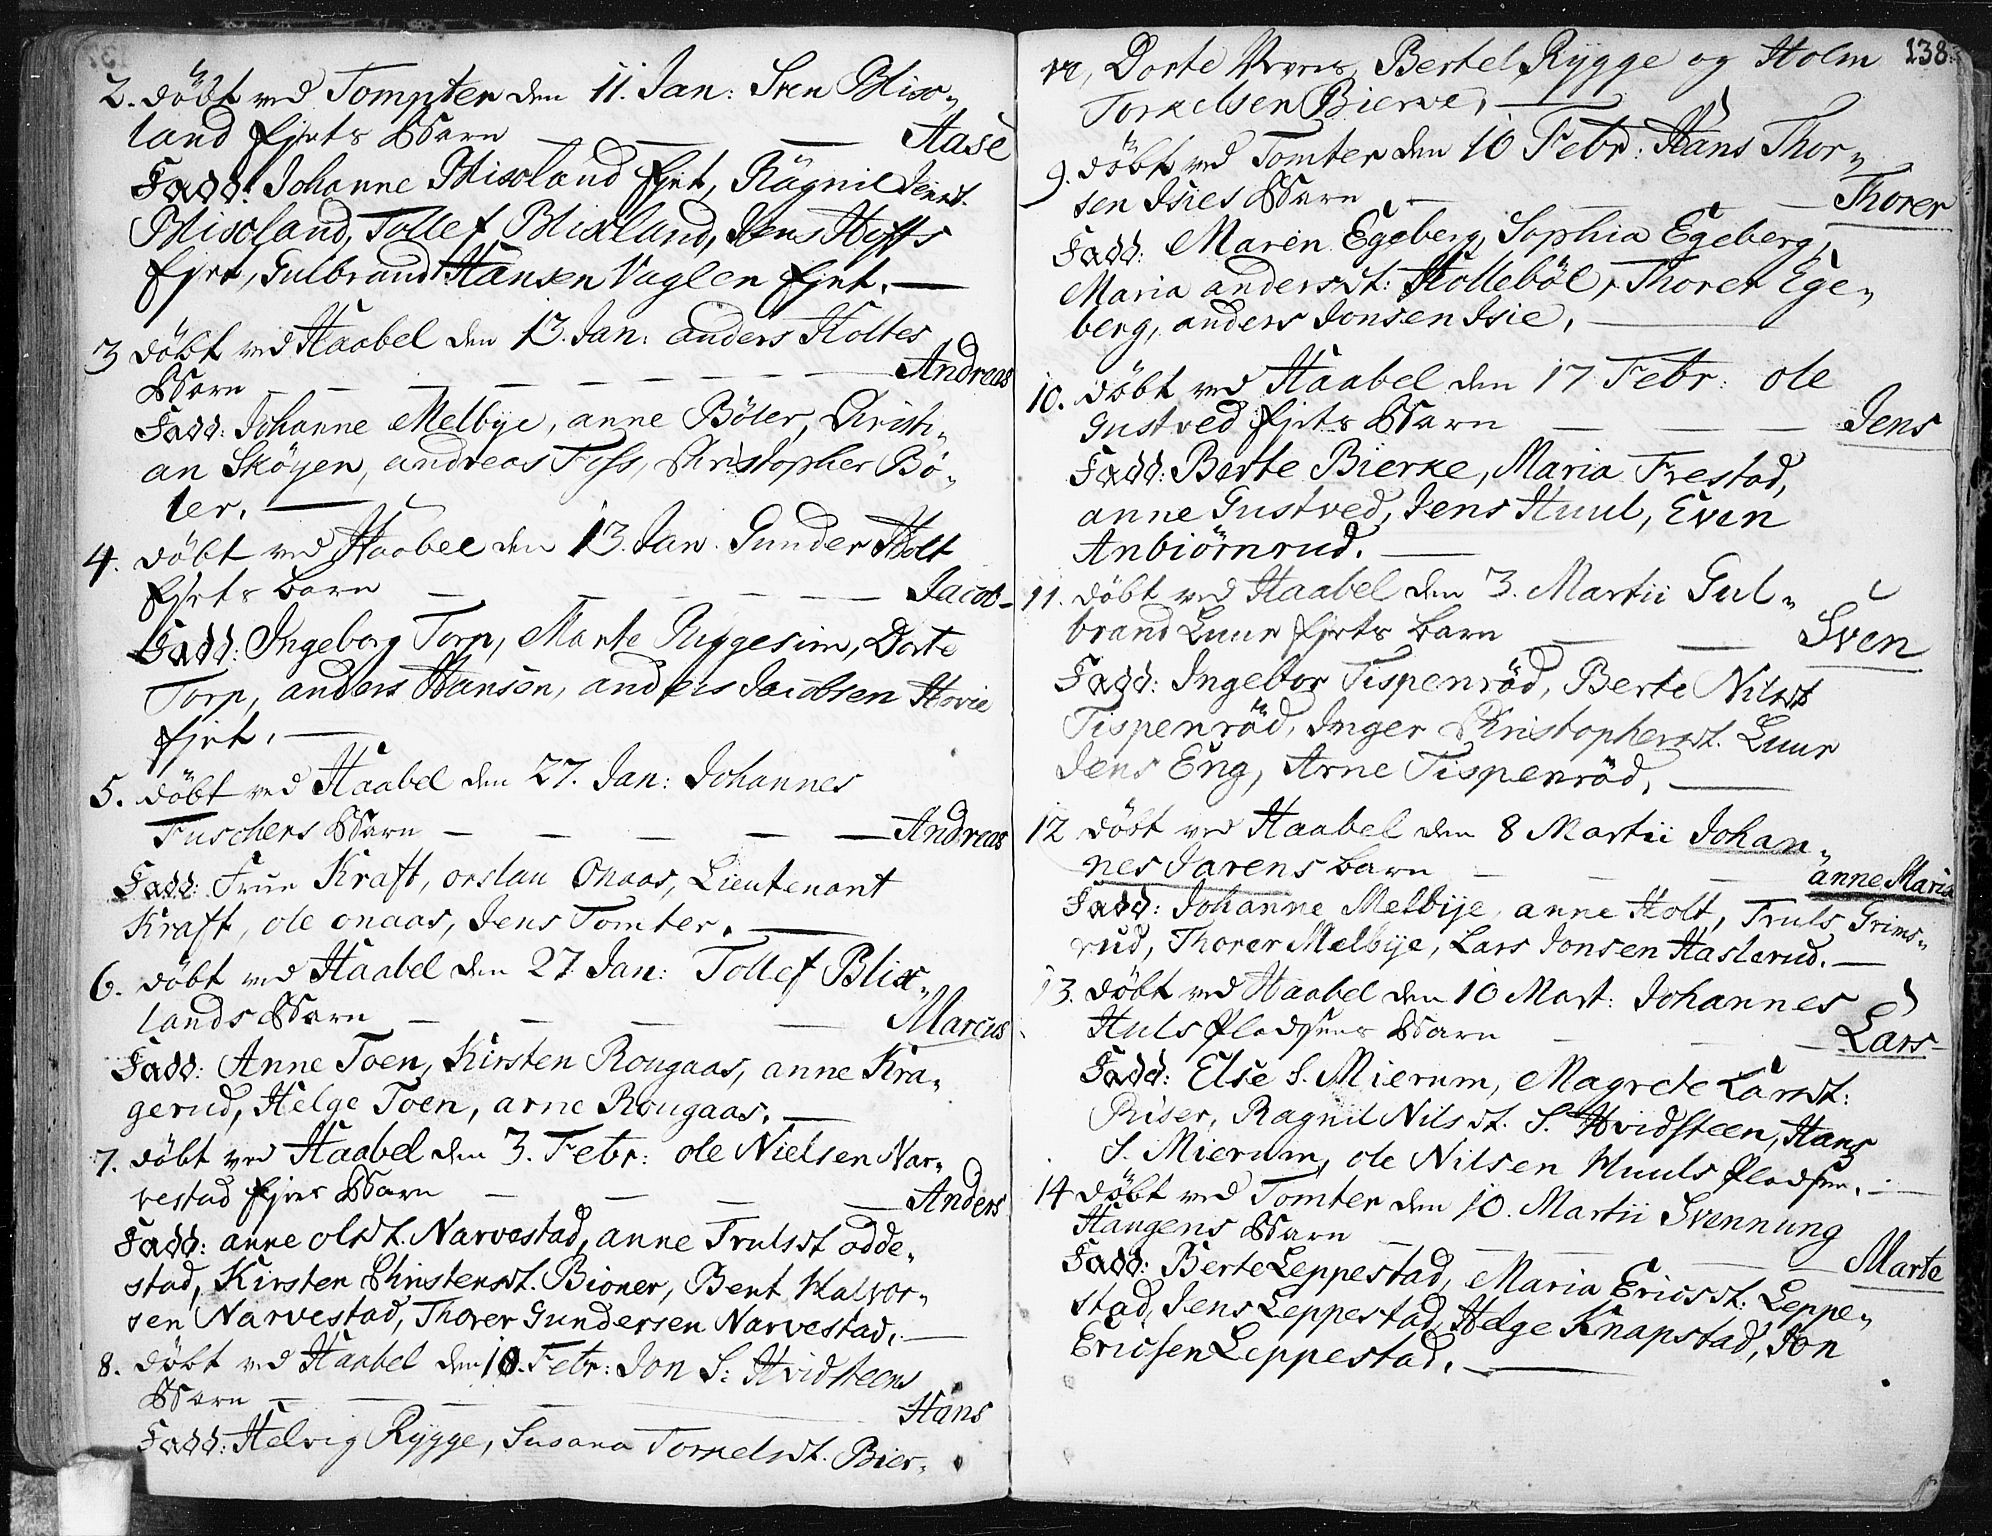 2. döbt ved Tompter den 11. Jan: Sven Blix-
land Ejets Barn — — — Aase
Fadd: Johanne Blixland Ejet, Rägnil Jensd.
Blixland, Tollef Blixland, Jens Hoffs
Ejet, Gulbrand Hansen Vaglen Ejet. —
3 döbt ved Haabel den 13. Jan: anders Holtes
Barn — — — — — Andreas
Fadd: Johanne Melbye, anne Böler, Christi-
an Sköyen, andreas Foss, Christopher Bö-
ler. —
4. döbt ved Haabel den 13. Jan. Gunder Holt
Ejets barn — — — — Jacob
Fadd: Ingeborg Torp, Marte Guggesim, Dorte
Torp, anders Hansen, anders Jacobsen Hovie
Ejet. —
5. döbt ved Haabel den 27. Jan: Johannes
Fuschers Barn — — — — Andreas
Fadd: Frue Kraft, aslau Onaas, Lieutenant
Kraft, ole onaas, Jens Tomter. —
6. döbt ved Haabel den 27 Jan: Tollef Blix-
lands Barn — — — — Marcus
Fadd: Anne Toen, Kirsten Rougaas, anne Kra-
gerud, Helge Toen, arne Rougaas. —
7. döbt ved Haabel den 3. Febr: ole Nielsen Nar-
vestad Ejets Barn — — — — Anders
Fadd: anne olsdt. Narvestad, anne Trulsdt odde-
stad, Kirsten Christensdt. Bioner, Bent Halvor-
sen Narvestad, Thorer Gundersen Narvestad. —
8. döbt ved Haabel den 10. Febr: Jon S: Hvidsteens
Barn — — — — Hans
Fadd: Helvig Rygge, Susana Torkelsdt. Bier-
138.
ke, Dorte Bertel Rygge og Holm
Torkelsen Bierke. —
9. döbt ved Tomter den 10 Febr: Hans Thor-
sen Isies Barn — — — Thorer
Fadd: Maren Egeberg, Sophia Egeberg,
Maria andersdt: Holleböl, Thorer Ege-
berg, anders Jonsen Isie. —
10. döbt ved Haabel den 17 Febr: ole
Gustved Ejets Barn — — — Jens
Fadd: Berte Bierke, Maria Frestad,
anne Gustved, Jens Huul, Even
Anbiörnrud. —
11. döbt ved Haabel den 3. Martii Gul-
brand Luur Ejets barn — — Sven
Fadd: Ingebor Tispenröd, Berte Nilsdt
Tispenröd, Inger Christophersdt. Luur
Jens Eng, Arne Tispenröd. —
12 döbt ved Haabel den 8 Martii Johan-
nes Jarens barn — — — anne Maria
Fadd: Johanne Melbije, anne Holt, Truls Grims-
rud, Thorer Melbije, Lars Jonsen Haslerud. —
13. döbt ved Haabel den 10 Mart: Johannes
Huls Pladsens Barn — — — Lars
Fadd: Else S. Mierum, Magrete Larsdt:
Riser, Ragnil Nilsdt. S. Hvidsteen, Hans
S. Mierum, ole Nilsen Huuls Pladsen. —
14 döbt ved Tomter den 10. Martii Svennung
Haugens Barn — — — Marte
Fadd: Berte Leppestad, Maria Ericsdt: Leppe-
stad, Jens Leppestad, Helge Knapstad, Jon
Ericsen Leppestad. —